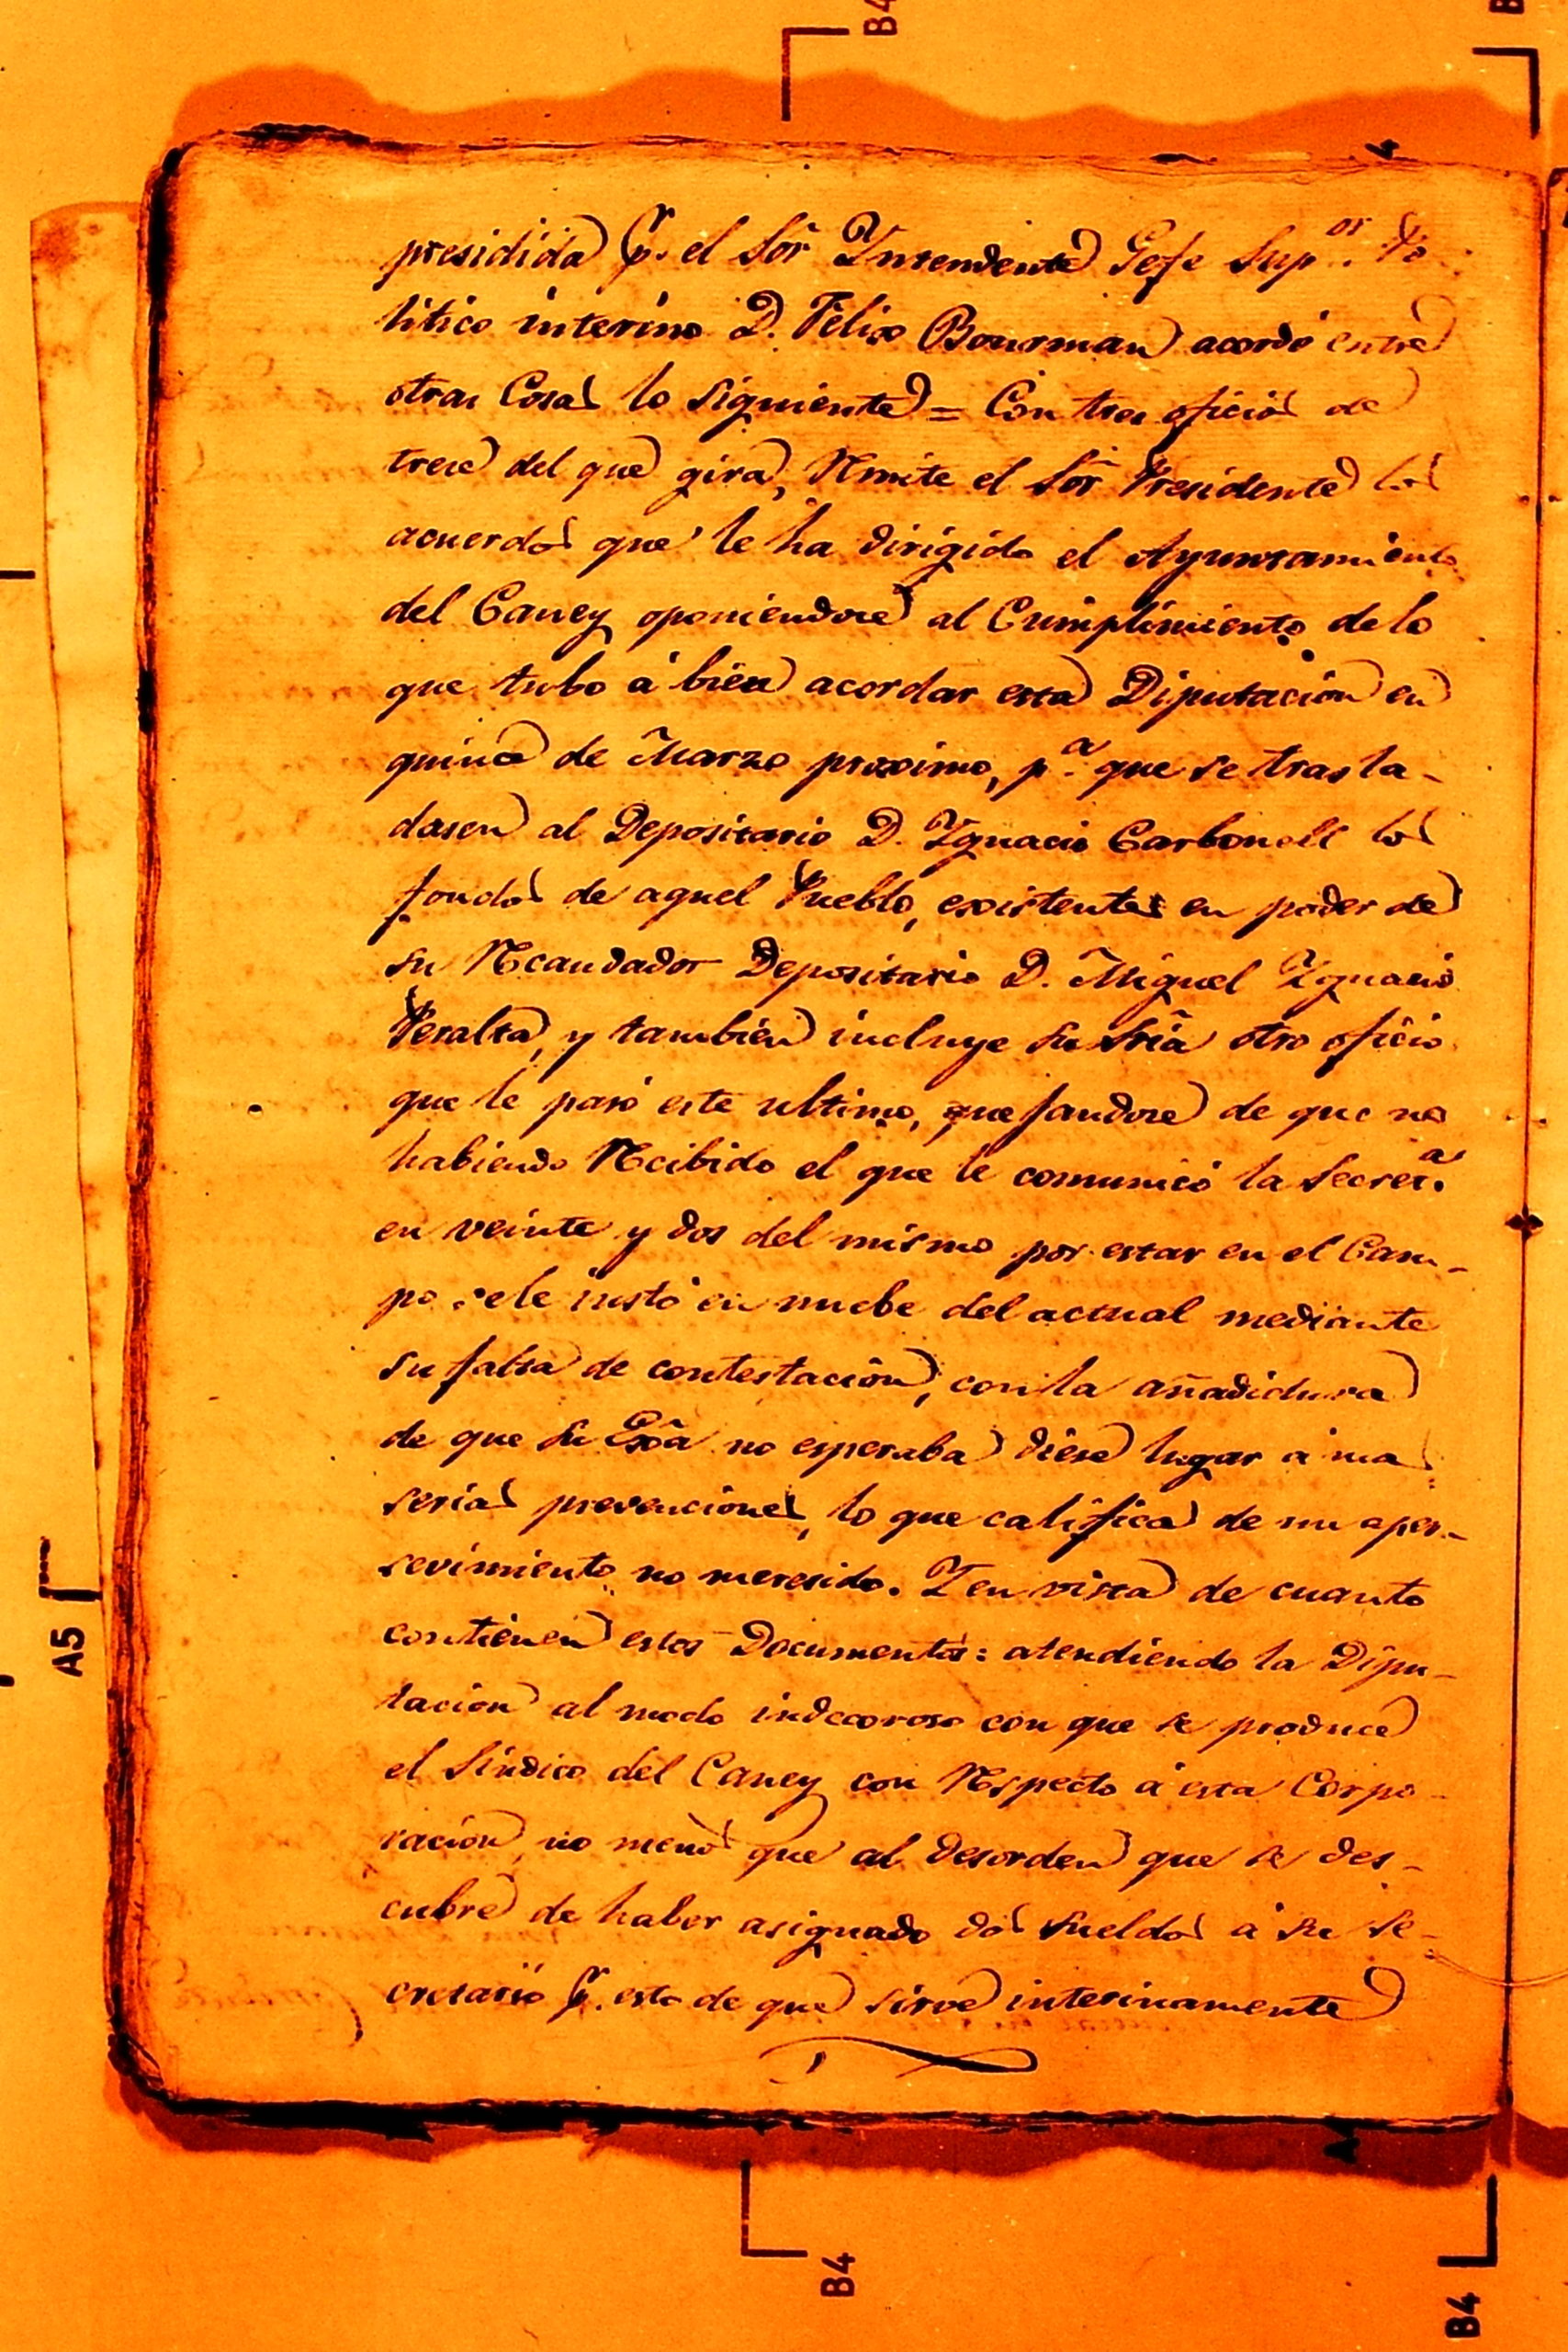 B4
presidida p.r el Sōr Yntendente Gefe Sup.or Po
litico interino D. Felix Bourman acordó entre
otras Cosas lo siguiente = Con tres oficios de
trece del que gira, Remite el Sōr Presidente los
acuerdos que le ha dirigido el Ayuntamiento
del Caney oponiendose al Cumplimiento de lo
que tubo á bien acordar esta Diputacion en
quince de Marzo proximo, p.a que se trasla-
dasen al Depositario D. Ygnacio Carbonell los
fondos de aquel Pueblo, existentes en poder de
su Recaudador Depositario D. Miguel Ygnacio
Peralta, y tambien incluye Su Sria otro oficio
que le pasó este ultimo, quejandose de que no
habiendo Recibido el que le comunicó la Secret.a
en veinte y dos del mismo por estar en el Cam-
po se le instó en nuebe del actual mediante
su falta de contestacion, con la añadidura
de que Su Exā no esperaba diese lugar á mas
serias prevenciones, lo que califica de un aper-
sevimiento no meresido. Y en vista de cuanto
contienen estos Documentos: atendiendo la Dipu-
tacion al modo indecoroso con que se produce
el Síndico del Caney con Respecto á esta Corpo-
racion, no menos que al desorden que se des-
cubre de haber asignado dos Sueldos á su Se-
cretario p.r esto de que sirve interinamente
A5
B4
B4